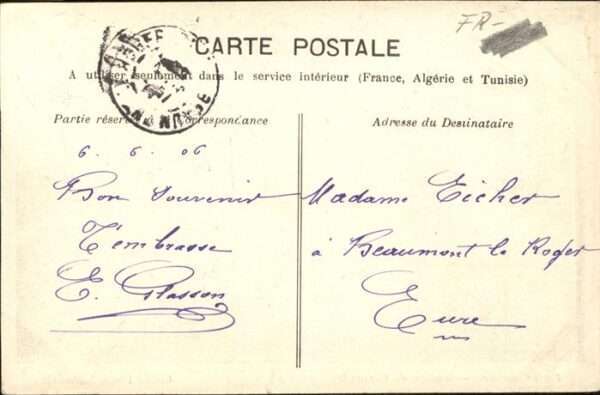 FR-
CARTE POSTALE
A utiliser seulement dans le service intérieur (France, Algérie et Tunisie)
Partie réservée à la Correspondance
Adresse du Destinataire
6. 6. 06
Bon souvenir
T'embrasse
E. Glasson
Madame Eicher
à Beaumont le Roger
Eure